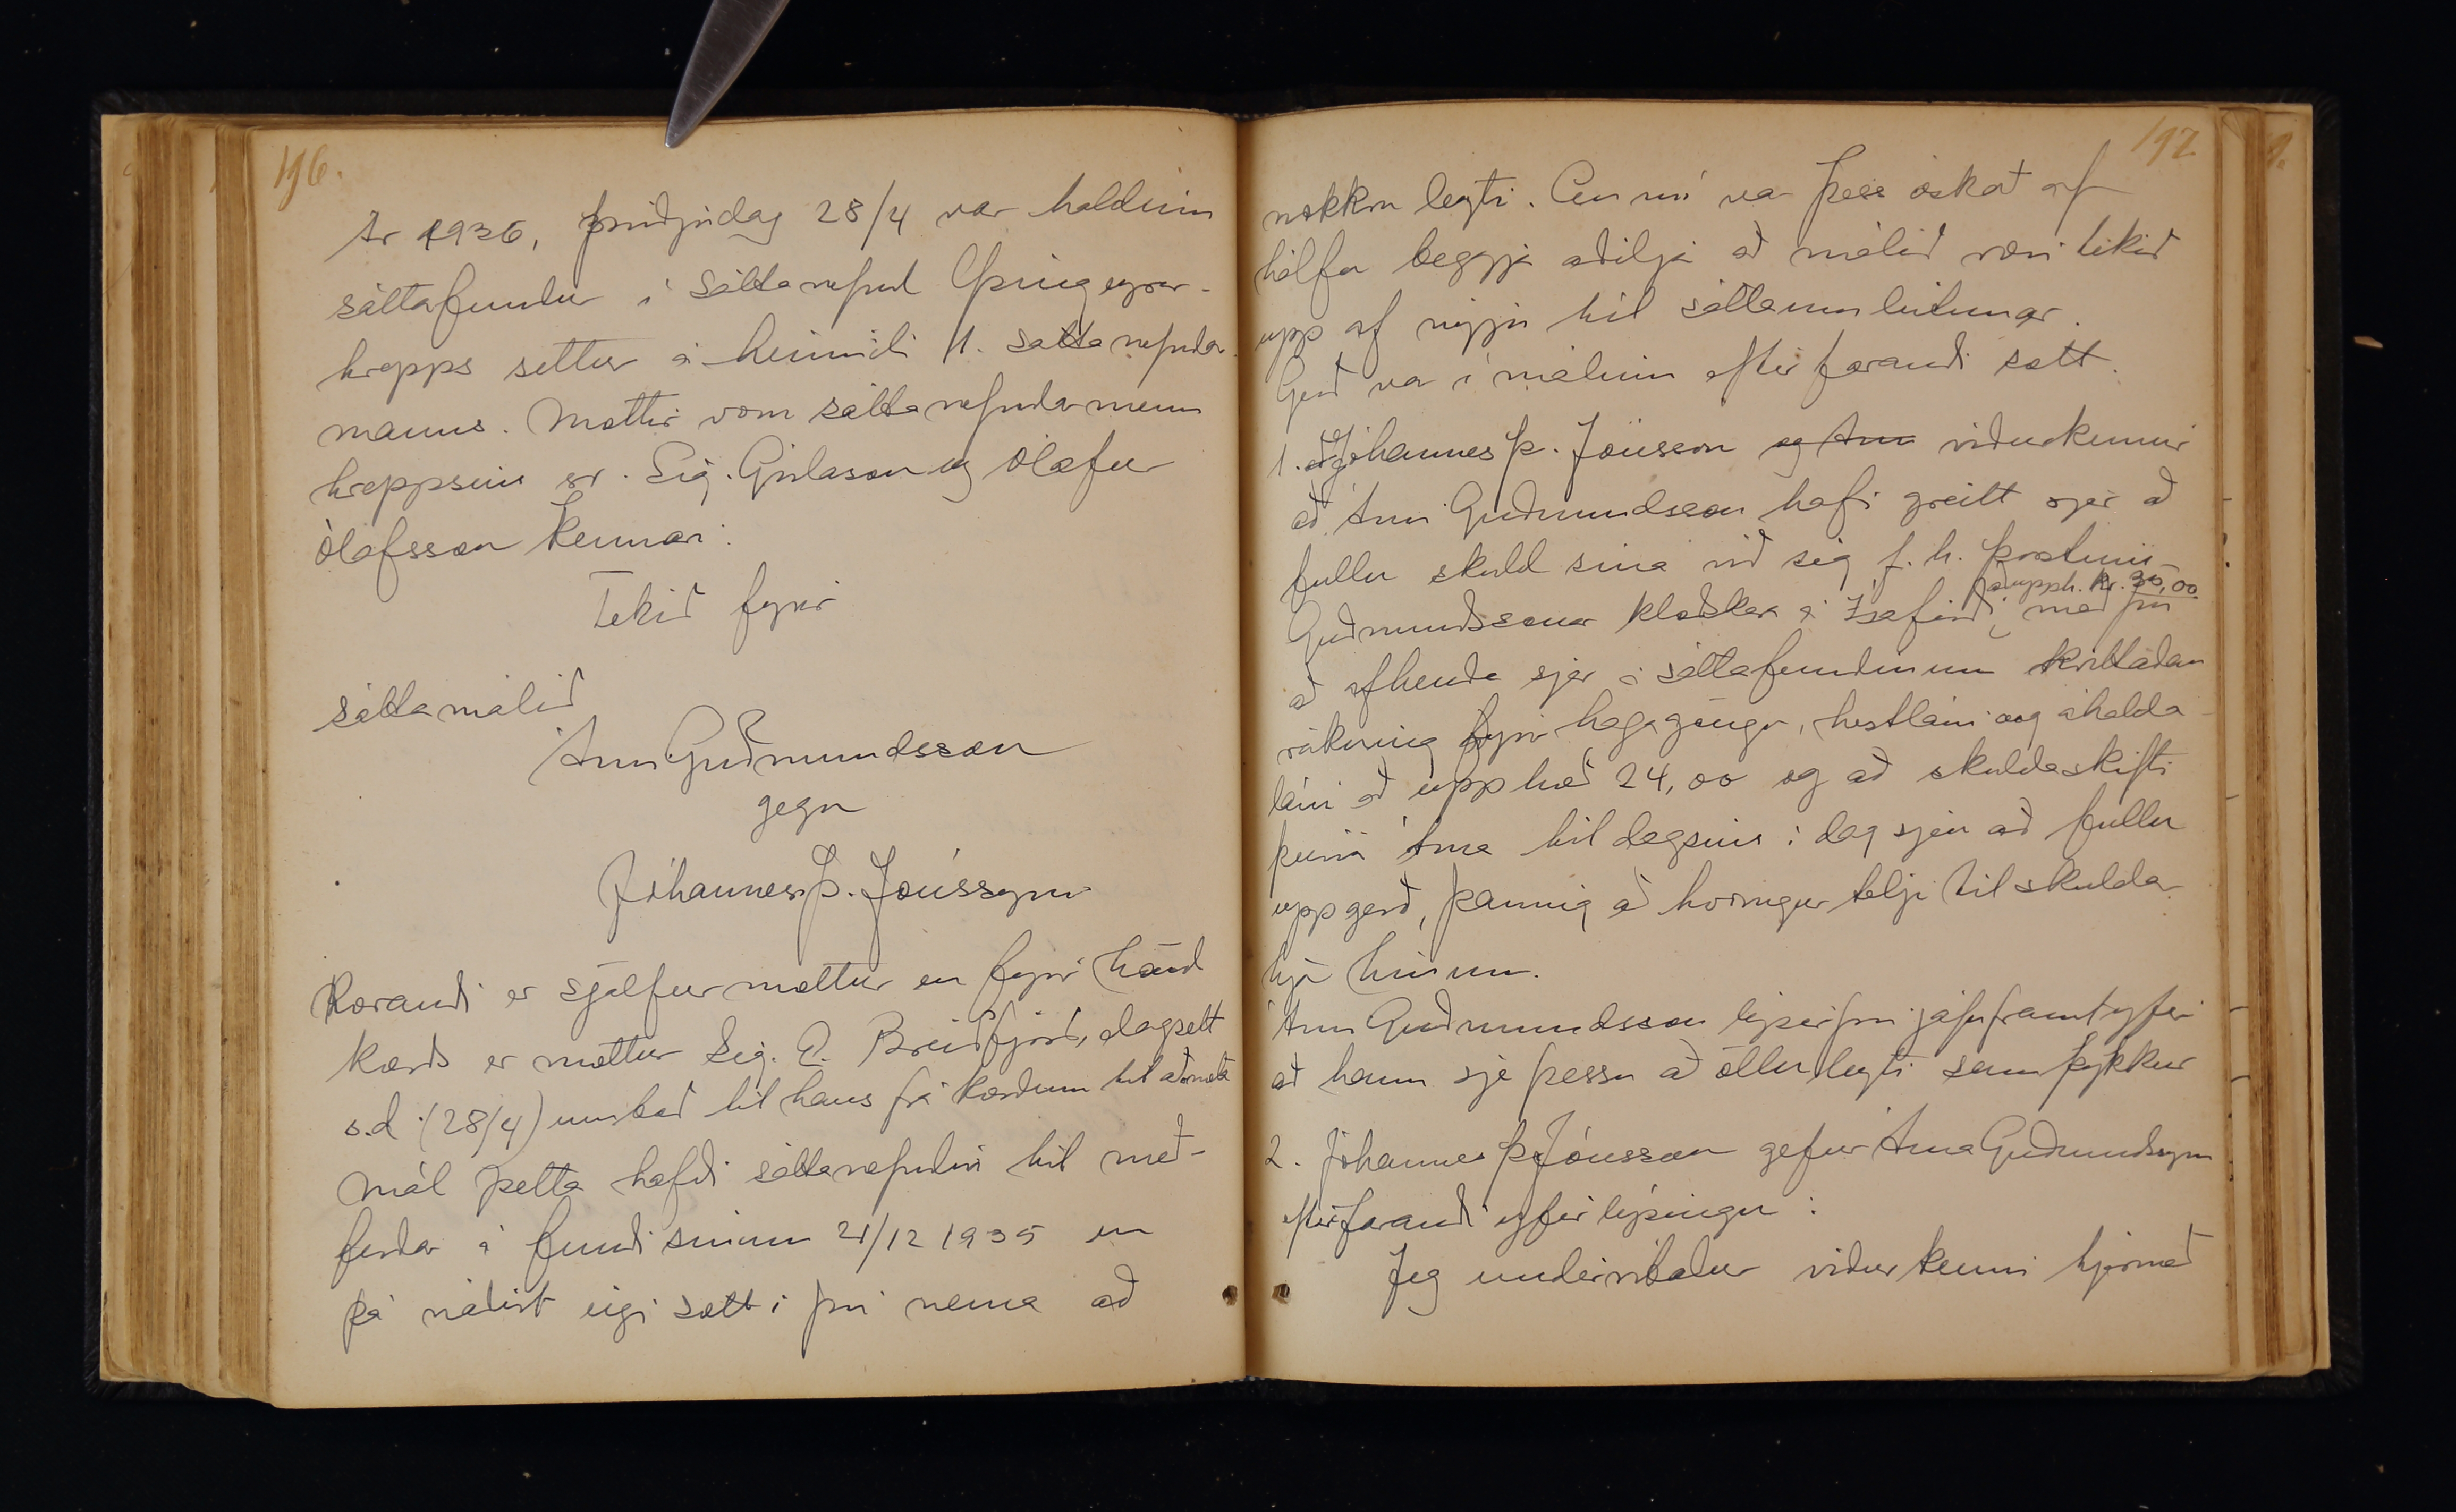 196.
Ár 1936, þriðjudag 28/4 var haldinn
sáttafundur í sáttanefnd Þingeyrar-
hrepps settur á heimili 1. sáttanefndar-
manns. Mættir vom sáttanefndarmenn
hreppsins sr. Sig. Gíslason og Ólafur
Ólafsson kennari.
Tekið fyrir
sáttamálið
Árni Guðmundsson
gegn
Jóhannes Þ. Jónssyni
Kærandi er sjálfur mættur en fyrir hönd
kærðs er mættur Sig. E. Breiðfjörð, dagsett
s.d. (28/4) umboð til hans frá kærðum til að mæta
Mál þetta hafði sáttanefndin til með-
ferðar á fundi sínum 21/12 1935 en
þá náðist eigi sætt í því nema að
192
nokkru leyti. En nú var þess óskað af
hálfu beggja aðilja að málið væri tekið
upp af nýju til sáttaumleitunar.
Gerð var í málinu eftirfarandi sætt.
1. Jóhannes Þ. Jónsson og Árni viðurkennir
að Árni Guðmundsson hafi greitt sjer að
fullu skuld sína við sig f. h. Þorsteins
að upph. kr. 30,00
Guðmundssonar klæðskera á Ísafirði, með því
að afhenda sjer á sáttafundinum kvittaðan
reikning fyrir hagagöngu, hestláni og áhalda
láni að upphæð 24,00 og að skuldaskifti
þeirra Árna til dagsins í dag sjeu að fullu
uppgerð, þannig að hvorugur telji til skulda
hjá hinum.
Árni Guðmundsson lýsir því jafnframt yfir
að hann sje þessu að öllu leyti samþykkur
2. Jóhannes Þ. Jónsson gefur Árna Guðmundssyni
eftirfarandi yfirlýsingu:
Jeg undirritaður viðurkenni hjermeð